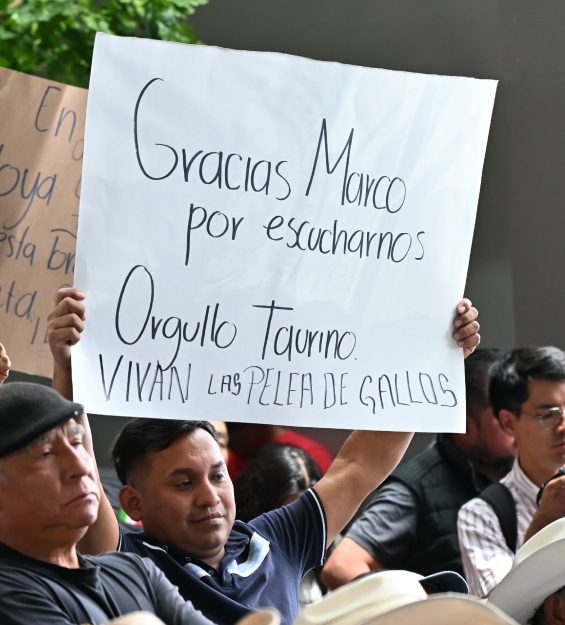 Gracias Marco
por escucharnos
Orgullo Taurino.
VIVAN LAS PELEA DE GALLOS
En
oya
esta
eta